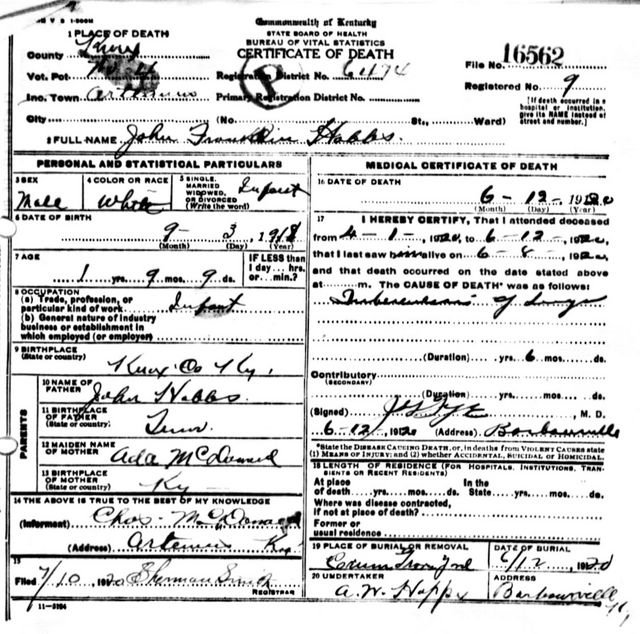 V S 1-500M
Commonwealth of Kentucky
STATE BOARD OF HEALTH
BUREAU OF VITAL STATISTICS
CERTIFICATE OF DEATH
1 PLACE OF DEATH
County Knox
Vot. Pct.
Inc. Town Artemus
City (No. St., Ward)
Registration District No. 6174
Primary Registration District No.
P
File No. 16562
Registered No. 9
[If death occurred in a hospital or institution, give its NAME instead of street and number.]
2 FULL NAME John Franklin Hobbs.
PERSONAL AND STATISTICAL PARTICULARS
3 SEX
Male
4 COLOR OR RACE
White
5 SINGLE, MARRIED WIDOWED, OR DIVORCED (Write the word)
Infant
6 DATE OF BIRTH
9 - 3, 1918
(Month) (Day) (Year)
7 AGE
1 yrs. 9 mos. 9 ds.
IF LESS than 1 day... hrs. or... min.?
8 OCCUPATION
(a) Trade, profession, or particular kind of work Infant
(b) General nature of industry business or establishment in which employed (or employer)
9 BIRTHPLACE
(State or country) Knox Co Ky.
PARENTS
10 NAME OF FATHER John Hobbs.
11 BIRTHPLACE OF FATHER (State or country) Tenn.
12 MAIDEN NAME OF MOTHER Ada McDonald
13 BIRTHPLACE OF MOTHER (State or country) Ky
14 THE ABOVE IS TRUE TO THE BEST OF MY KNOWLEDGE
(Informant) Chas. McDonald
(Address) Artemus Ky
15
Filed 7/10 1920 Sherman Smith
REGISTRAR
11-3184
MEDICAL CERTIFICATE OF DEATH
16 DATE OF DEATH
6 - 12 - 1920
(Month) (Day) (Year)
17 I HEREBY CERTIFY, That I attended deceased
from 4-1-, 1920, to 6-12-, 1920,
that I last saw him alive on 6-8, 1920,
and that death occurred on the date stated above
at m. The CAUSE OF DEATH* was as follows:
Tuberculosis of Lungs
(Duration) yrs. 6 mos. ds.
Contributory
(SECONDARY)
(Duration) yrs. mos. ds.
(Signed) , M. D.
6-12, 1920 (Address) Barbourville
*State the DISEASE CAUSING DEATH, or, in deaths from VIOLENT CAUSES state (1) MEANS OF INJURY; and (2) whether ACCIDENTAL, SUICIDAL or HOMICIDAL.
18 LENGTH OF RESIDENCE (FOR HOSPITALS, INSTITUTIONS, TRANSIENTS OR RECENT RESIDENTS)
At place In the
of death yrs. mos. ds. State yrs. mos. ds.
Where was disease contracted,
if not at place of death?
Former or
usual residence
19 PLACE OF BURIAL OR REMOVAL
DATE OF BURIAL
6/12 1920
20 UNDERTAKER
A.W. Hopper
ADDRESS
Barbourville Ky,